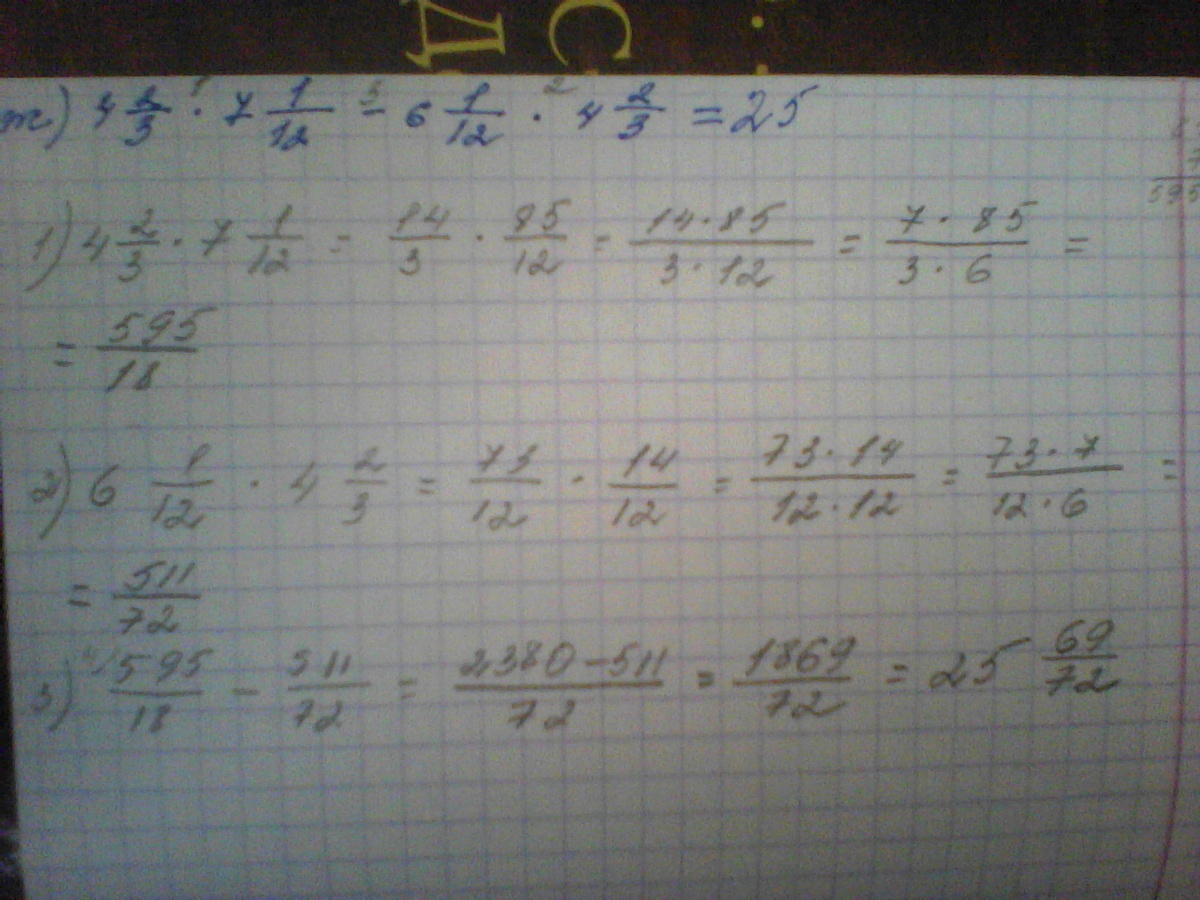 ж) 4 2/3 · 7 1/12 - 6 1/12 · 4 2/3 = 25
1) 4 2/3 · 7 1/12 = 14/3 · 85/12 = 14·85/3·12 = 7·85/3·6 =
= 595/18
2) 6 1/12 · 4 2/3 = 73/12 · 14/12 = 73·14/12·12 = 73·7/12·6 =
= 511/72
3) 595/18 - 511/72 = 2380-511/72 = 1869/72 = 25 69/72
595